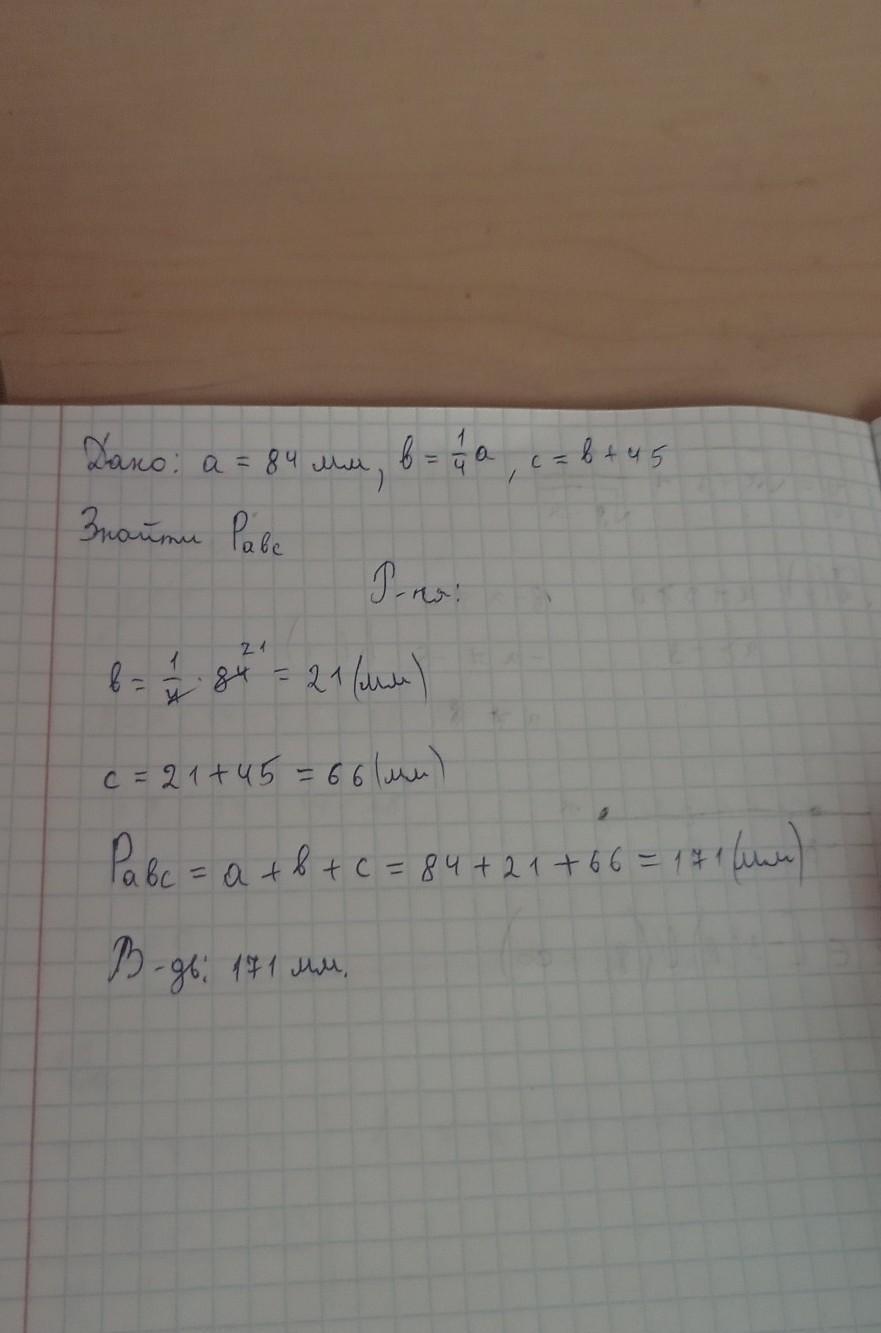 Дано: a = 84 мм, в = 1/4 a, c = в + 45
Знайти Pавс
Р-ня:
в = 1/4 · 84 21 = 21 (мм)
c = 21 + 45 = 66 (мм)
Pавс = a + в + c = 84 + 21 + 66 = 171 (мм)
В-дь: 171 мм.